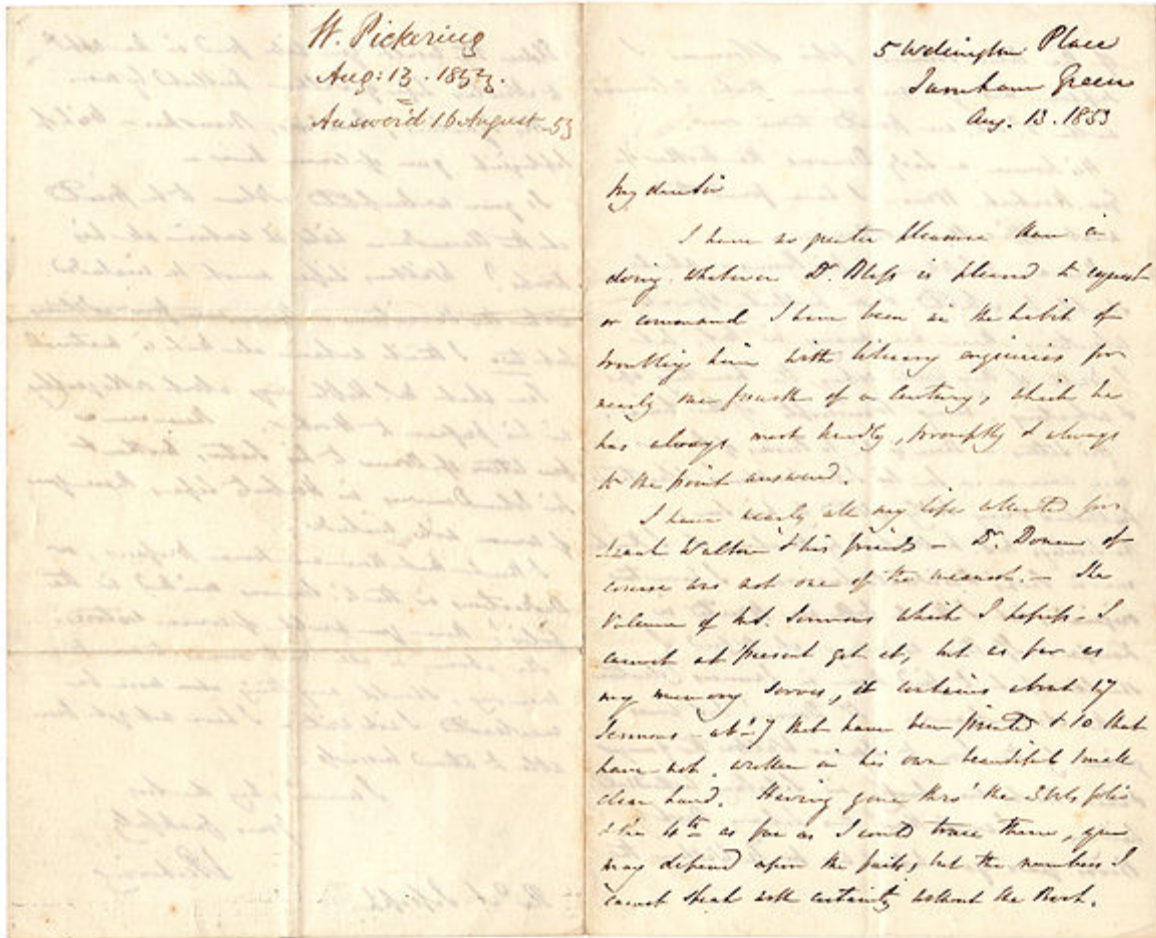 W. Pickering
Aug: 13. 1853.
Answer'd 16 August - 53
5 Wellington Place
Turnham Green
Aug. 13. 1853
My dear Sir
I have no greater pleasure than in
doing whatever Dr. Bliss is pleased to request
or command I have been in the habit of
troubling him with literary enquiries for
nearly one fourth of a Century, which he
has always most kindly, promptly & always
to the point answered.
I have nearly all my life collected for
Izaak Walton & his friends - Dr. Donne of
course was not one of the meanest. - The
Volume of M.S. Sermons which I possess - I
cannot at present get at, but as far as
my memory serves, it contains about 17
Sermons - abt. 7 that have been printed & 10 that
have not, written in his own beautiful small
clear hand. Having gone thro' the 3 Vols folio
& the 4th as far as I could trace them, you
may depend upon the facts, but the numbers I
cannot speak with certainty without the Book.